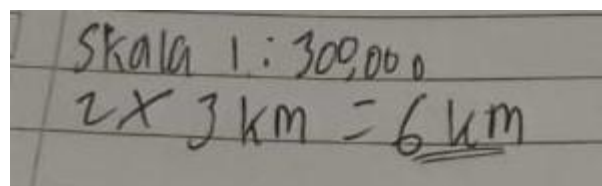 Skala 1 : 300,000
2 × 3 km = 6 km